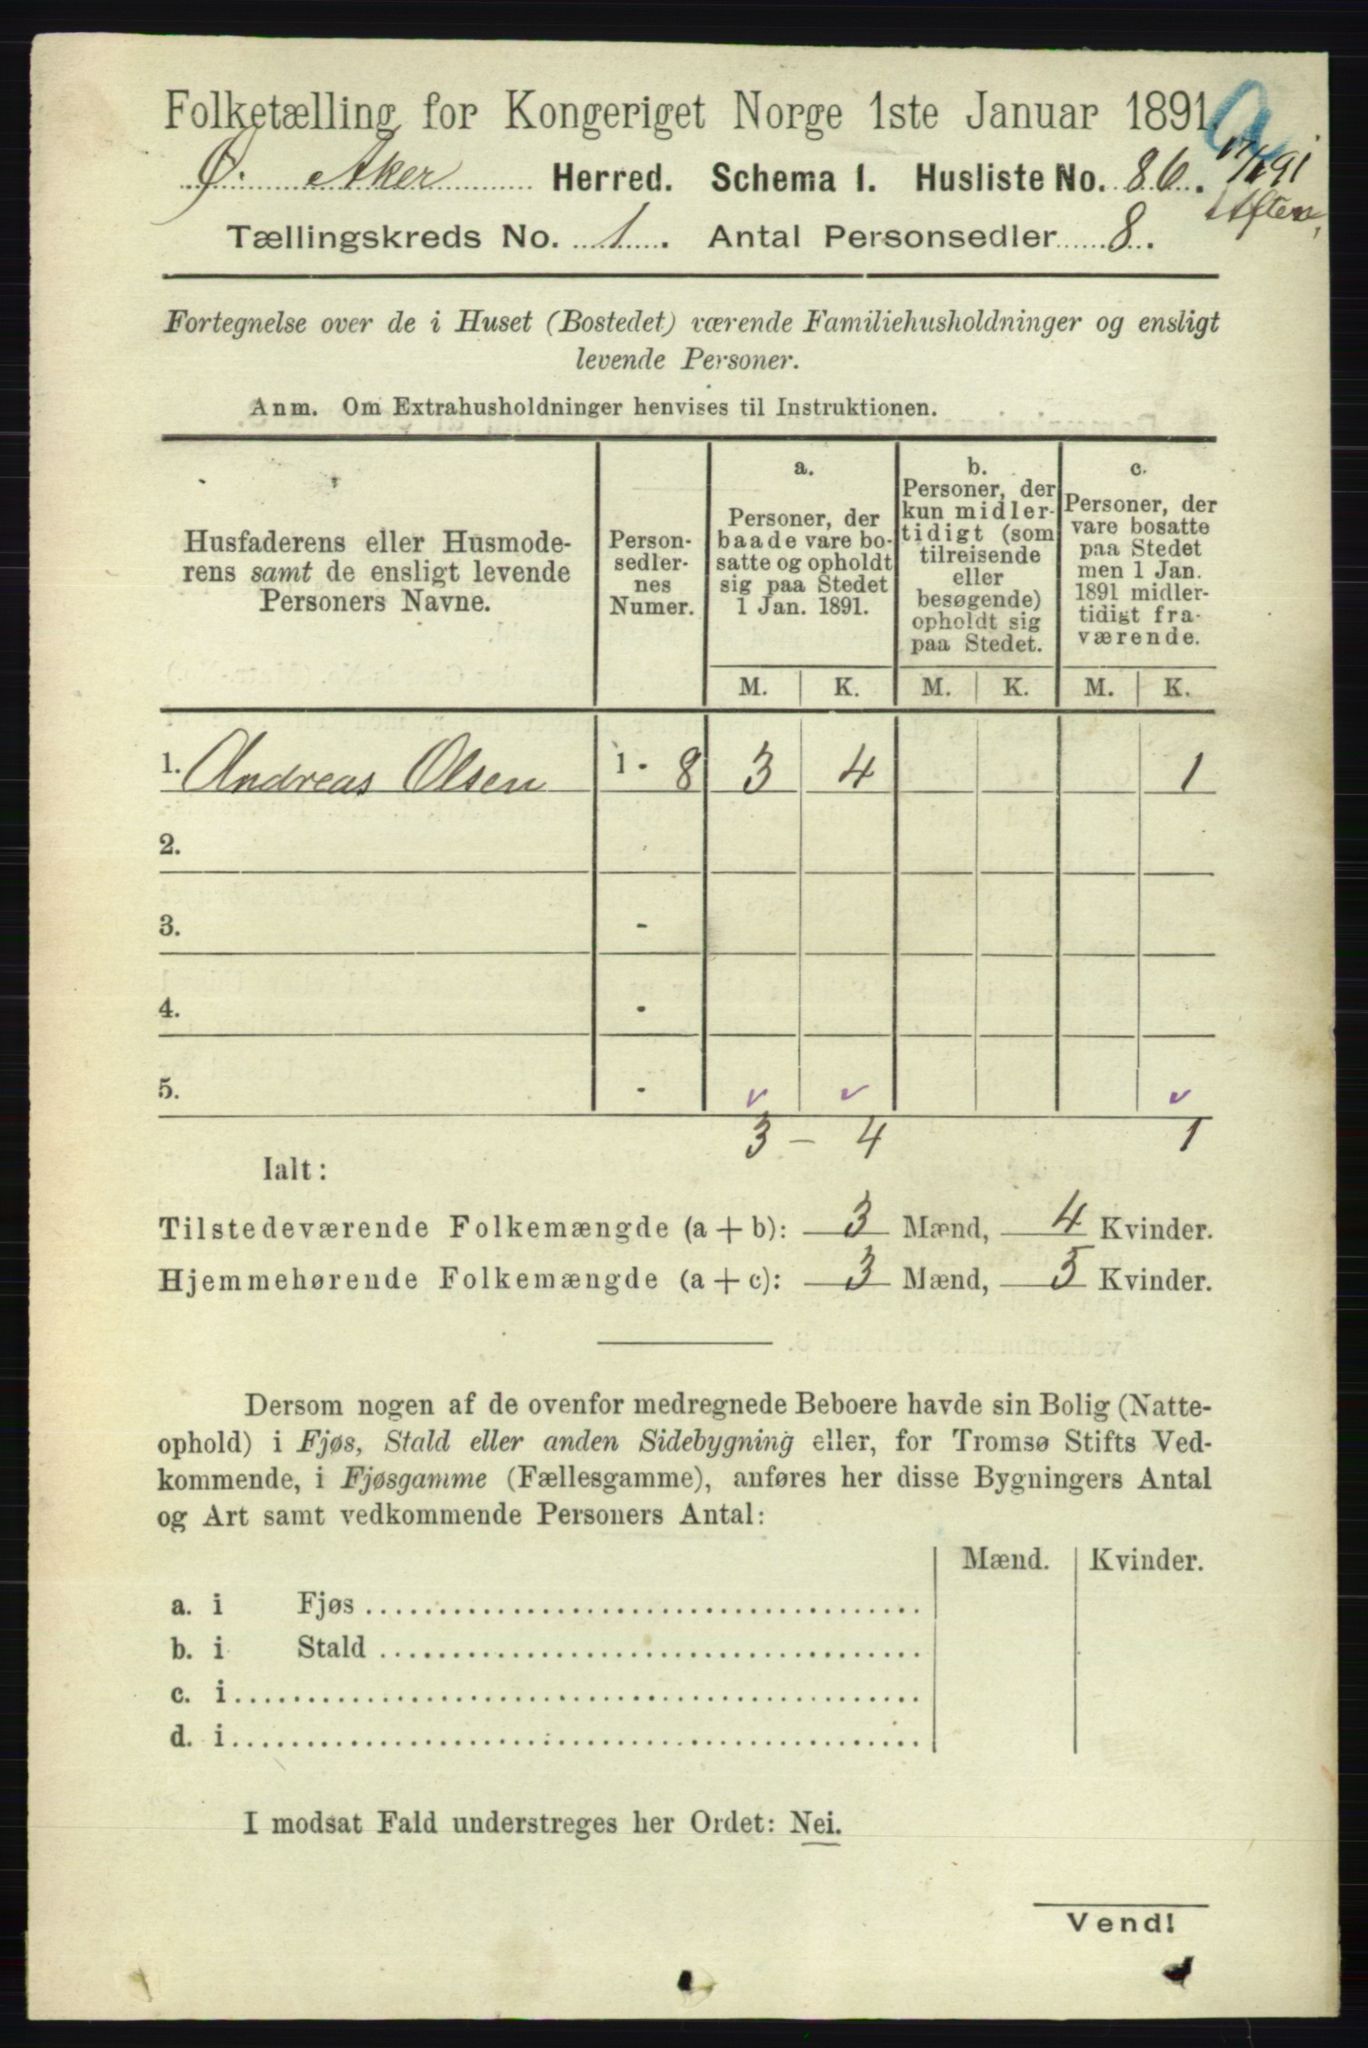 Folketælling for Kongeriget Norge 1ste Januar 1891.
Ø. Aker Herred. Schema 1. Husliste No. 86.
Aften,
Tællingskreds No. 1. Antal Personsedler 8.
Fortegnelse over de i Huset (Bostedet) værende Familiehusholdninger og ensligt
levende Personer.
Anm. Om Extrahusholdninger henvises til Instruktionen.
Husfaderens eller Husmode-
rens samt de ensligt levende
Personers Navne.
Person-
sedler-
nes
Numer.
a.
Personer, der
baade vare bo-
satte og opholdt
sig paa Stedet
1 Jan. 1891.
b.
Personer, der
kun midler-
tidigt (som
tilreisende
eller
besøgende)
opholdt sig
paa Stedet.
c.
Personer, der
vare bosatte
paa Stedet
men 1 Jan.
1891 midler-
tidigt fra-
værende.
M. K. M. K. M. K.
1. Andreas Olsen 1 - 8 3 4 1
2.
3. -
4. -
5. -
3 - 4 1
Ialt:
Tilstedeværende Folkemængde (a + b): 3 Mænd, 4 Kvinder.
Hjemmehørende Folkemængde (a + c): 3 Mænd, 5 Kvinder.
Dersom nogen af de ovenfor medregnede Beboere havde sin Bolig (Natte-
ophold) i Fjøs, Stald eller anden Sidebygning eller, for Tromsø Stifts Ved-
kommende, i Fjøsgamme (Fællesgamme), anføres her disse Bygningers Antal
og Art samt vedkommende Personers Antal:
Mænd. Kvinder.
a. i Fjøs
b. i Stald
c. i
d. i
I modsat Fald understreges her Ordet: Nei.
Vend!